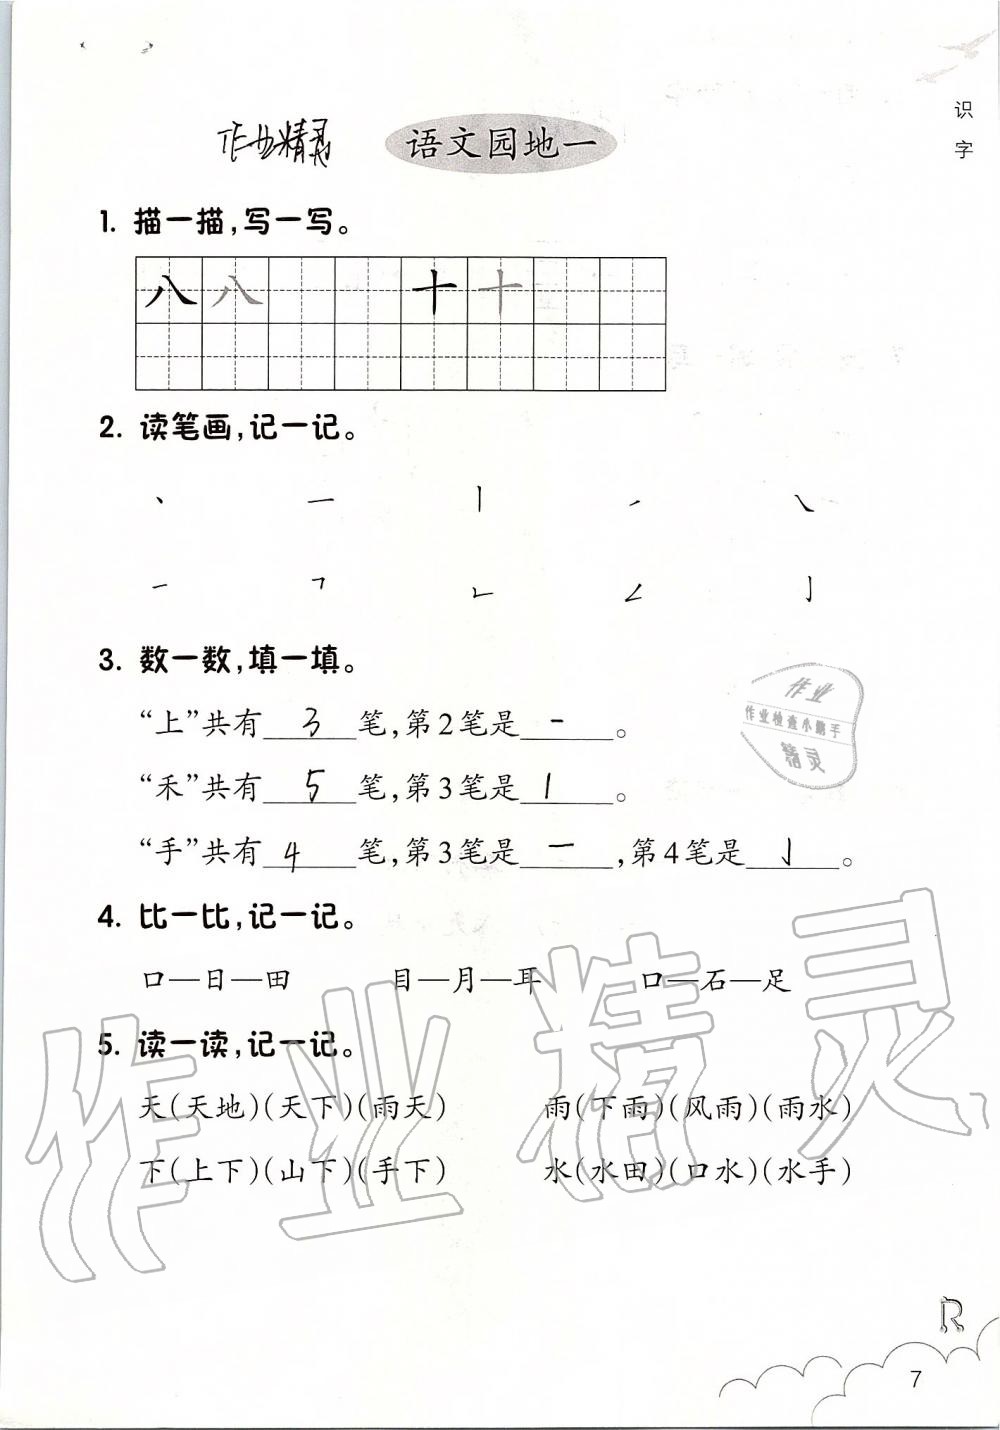 识字
作业精灵
语文园地一
1. 描一描,写一写。
八 八 十 十
2. 读笔画,记一记。
丶 一 丨 ㇀ ㇏
㇐ ㇕ ㇗ ㇜ 亅
3. 数一数,填一填。
“上”共有 3 笔,第2笔是 一 。
“禾”共有 5 笔,第3笔是 丨 。
“手”共有 4 笔,第3笔是 一 ,第4笔是 亅 。
作业
作业检查小助手
精灵
4. 比一比,记一记。
口—日—田 目—月—耳 口—石—足
5. 读一读,记一记。
天(天地)(天下)(雨天) 雨(下雨)(风雨)(雨水)
下(上下)(山下)(手下) 水(水田)(口水)(水手)
作业精灵
R
7